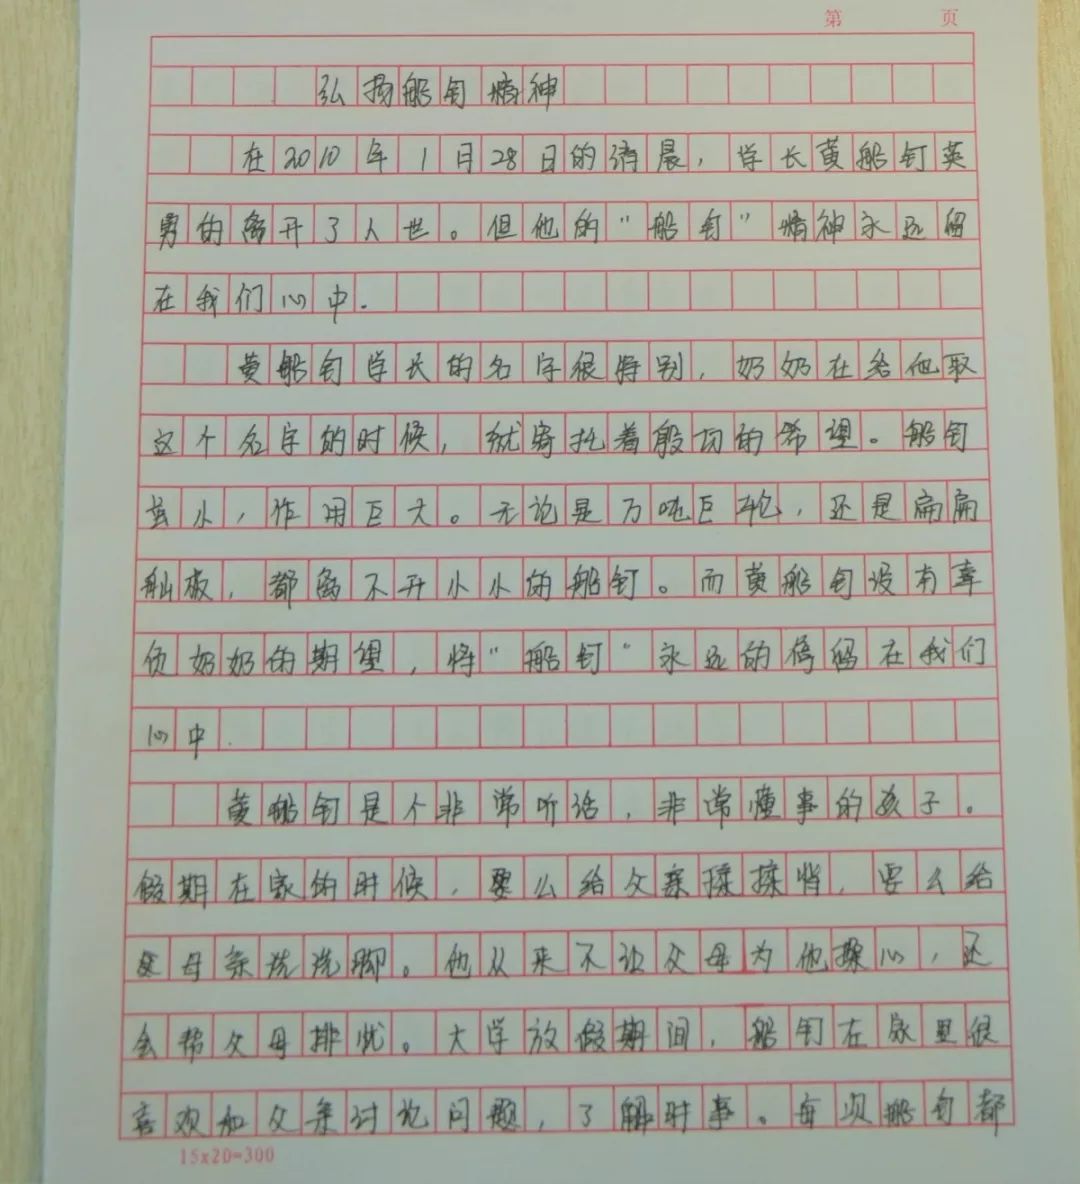 第 页
弘扬船钉精神
在2010年1月28日的清晨,学长黄船钉英
勇的离开了人世。但他的"船钉"精神永远留
在我们心中.
黄船钉学长的名字很特别,奶奶在给他取
这个名字的时候,就寄托着殷切的希望。船钉
虽小,作用巨大。无论是万吨巨轮,还是扁扁
舢板,都离不开小小的船钉。而黄船钉没有辜
负奶奶的期望,将"船钉"永远的停留在我们
心中.
黄船钉是个非常听话,非常懂事的孩子。
假期在家的时候,要么给父亲揉揉背,要么给
母亲洗洗脚。他从来不让父母为他操心,还
会帮父母排忧。大学放假期间,船钉在家里很
喜欢和父亲讨论问题,了解时事。每次船钉都
15x20=300